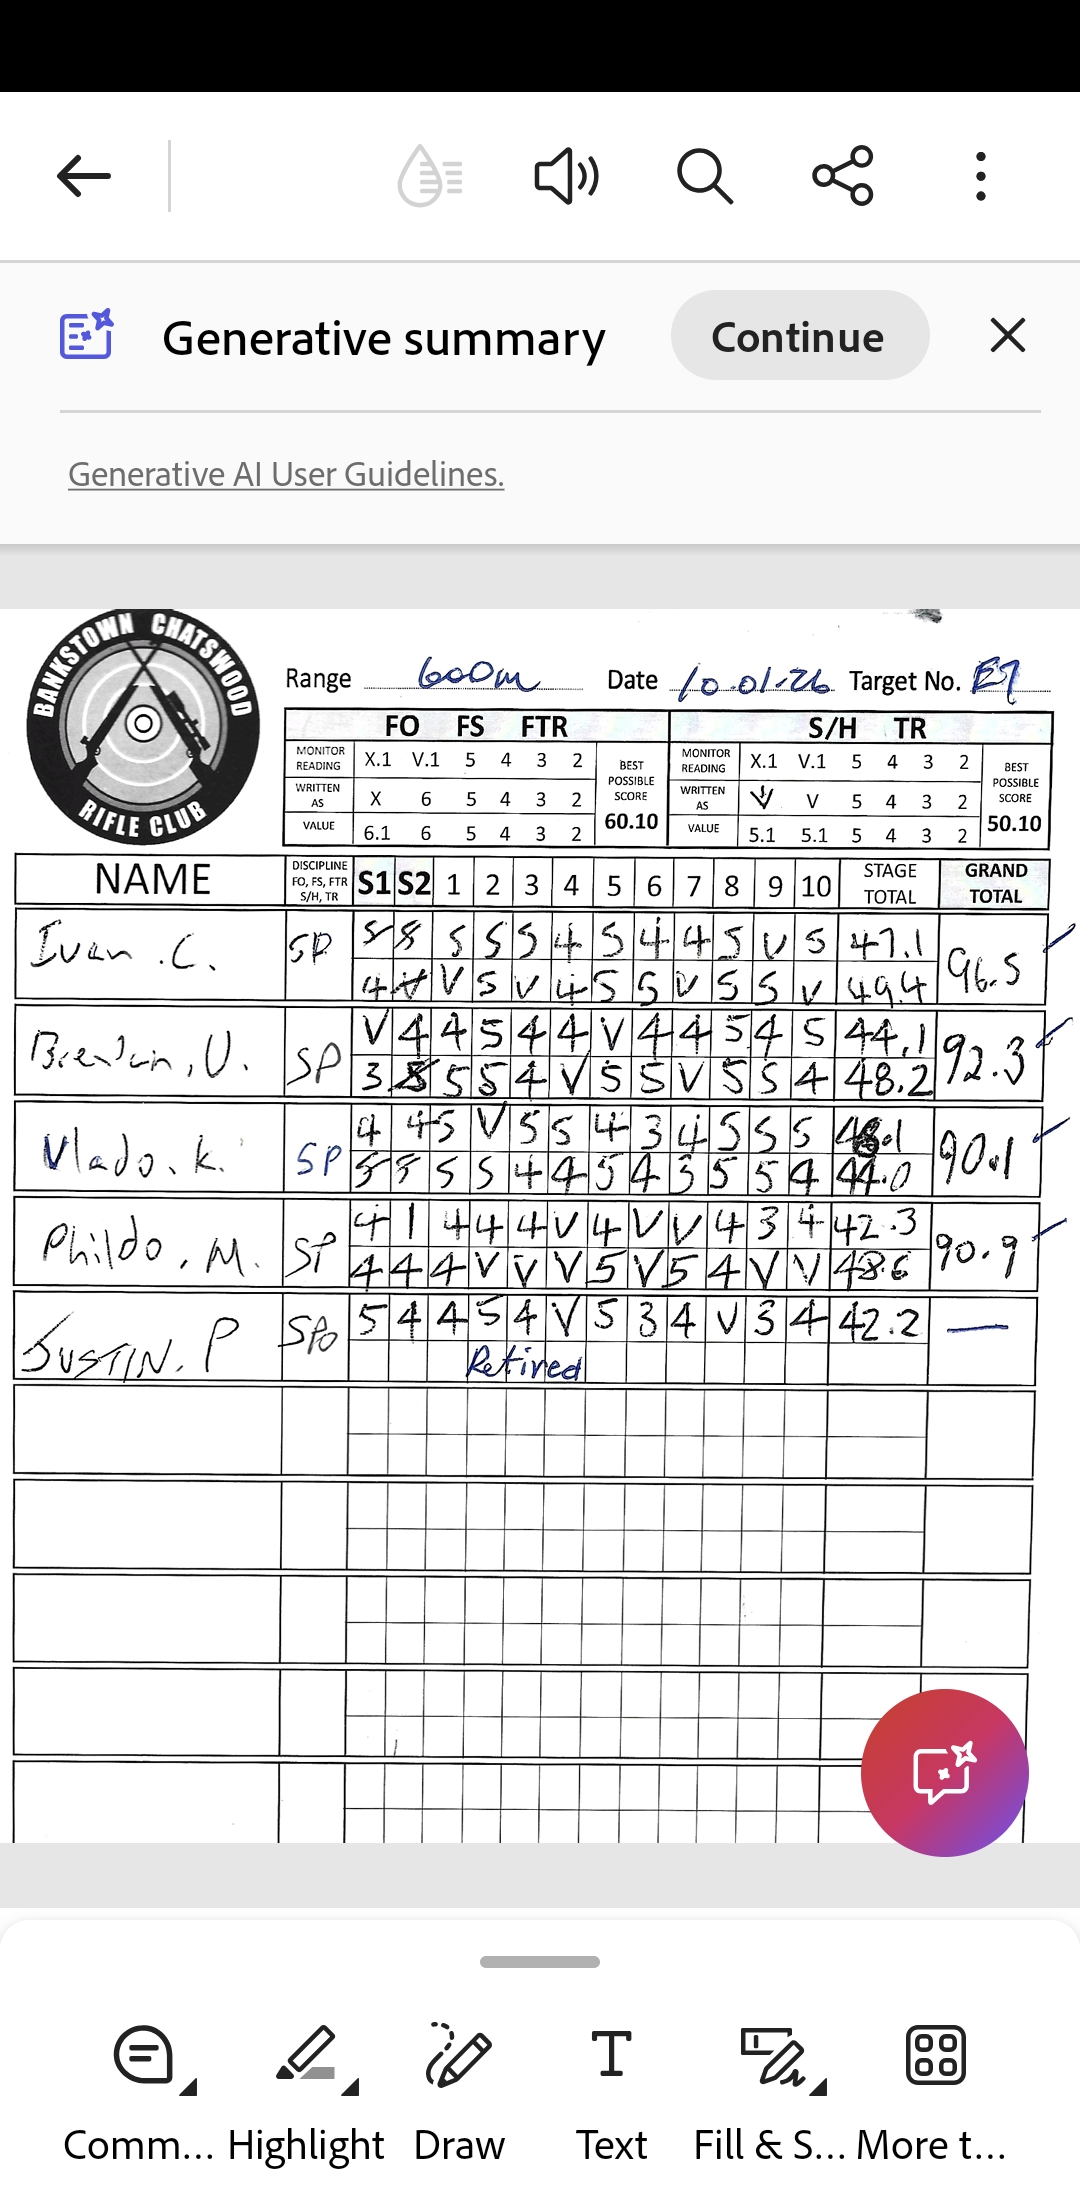 Generative summary
Continue
Generative AI User Guidelines.
BANKSTOWN CHATSWOOD
RIFLE CLUB
Range 600m Date 10.01.26 Target No. E7
FO FS FTR S/H TR
MONITOR READING X.1 V.1 5 4 3 2 BEST POSSIBLE SCORE MONITOR READING X.1 V.1 5 4 3 2 BEST POSSIBLE SCORE
WRITTEN AS X 6 5 4 3 2 60.10 WRITTEN AS V 5 4 3 2 50.10
VALUE 6.1 6 5 4 3 2 VALUE 5.1 5.1 5 4 3 2
NAME DISCIPLINE FO, FS, FTR S/H, TR S1 S2 1 2 3 4 5 6 7 8 9 10 STAGE TOTAL GRAND TOTAL
Ivan .C. SP 5 5 5 4 5 4 4 5 V 5 47.1 96.5
4 V 5 V 4 5 5 V 5 5 V 49.4
Brendan, U. SP V 4 4 5 4 4 V 4 4 5 4 5 44.1 92.3
3 5 5 4 V 5 5 V 5 5 4 48.2
Vlado. K. SP 4 4 5 V 5 5 4 3 4 5 5 5 .1 90.1
5 5 4 4 5 4 3 5 5 4 44.0
Phildo, M. SP 4 1 4 4 4 V 4 V V 4 3 4 42.3 90.9
4 4 4 V V V 5 V 5 4 V V 48.6
JUSTIN. P 5 4 4 5 4 V 5 3 4 V 3 4 42.2 —
Retired
Comm... Highlight Draw Text Fill & S... More t...